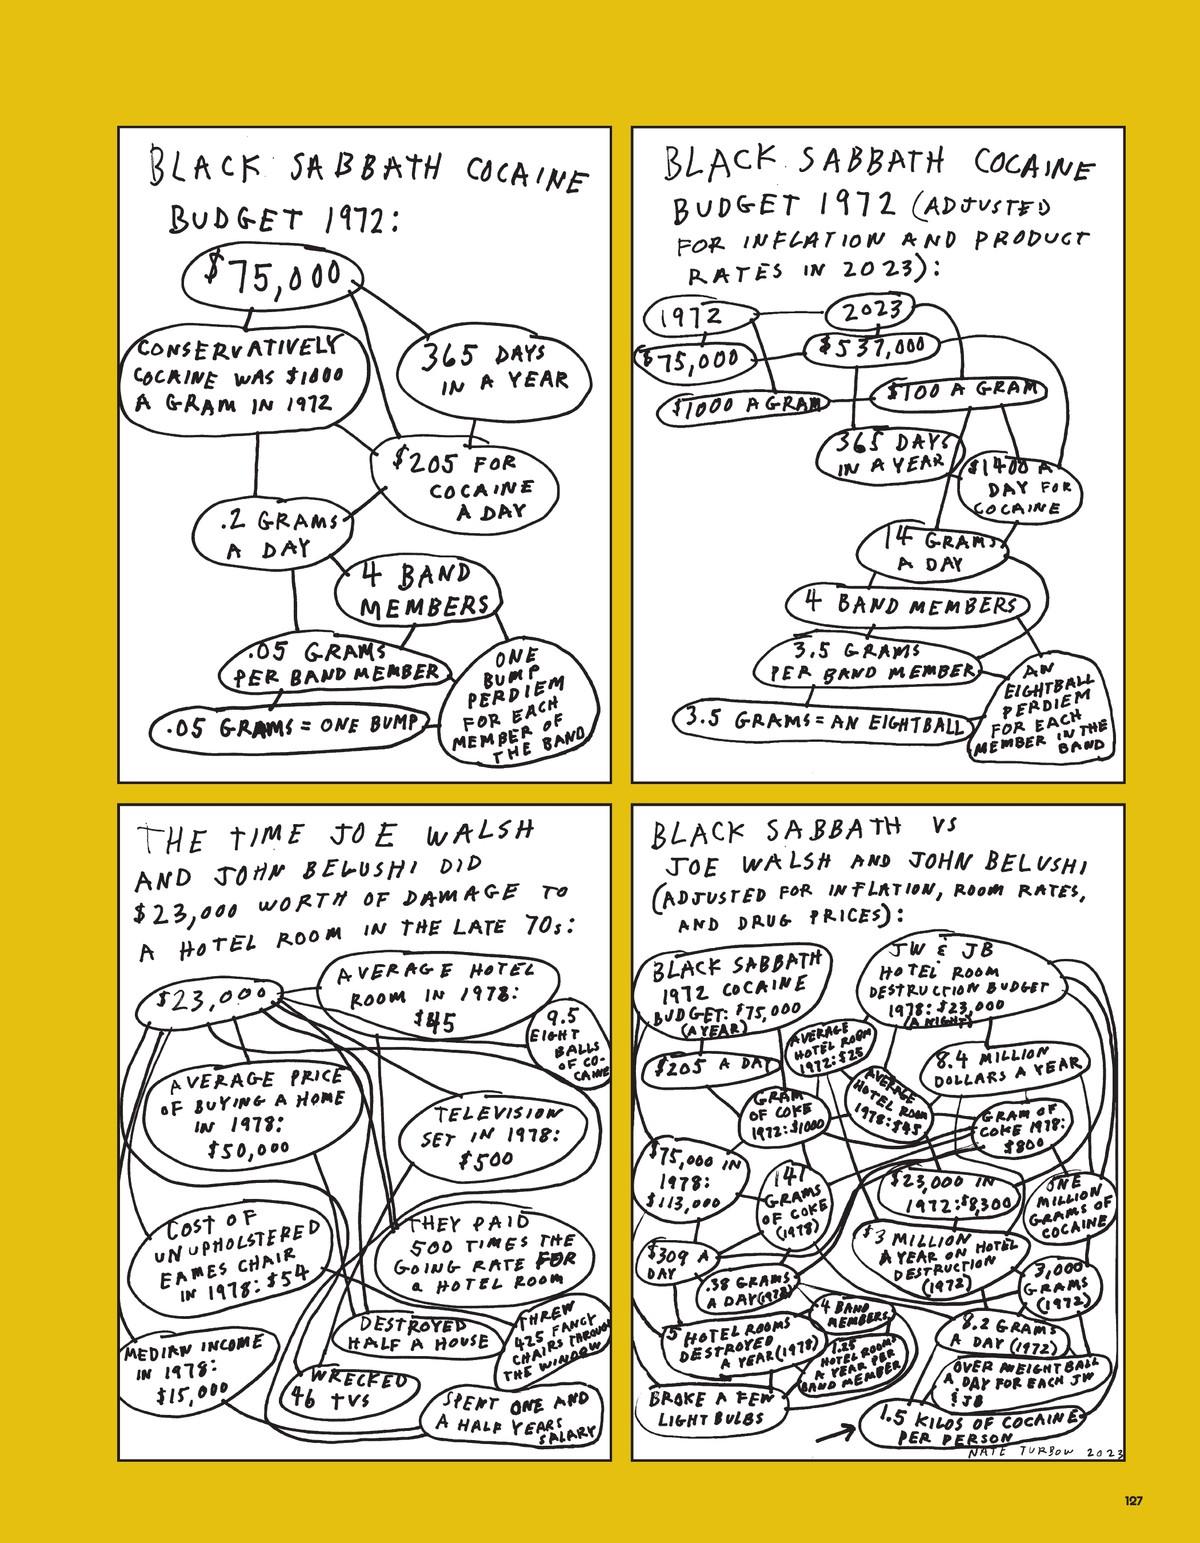 BLACK SABBATH COCAINE
BUDGET 1972:
$75,000
CONSERVATIVELY
COCAINE WAS $1000
A GRAM IN 1972
365 DAYS
IN A YEAR
$205 FOR
COCAINE
A DAY
.2 GRAMS
A DAY
4 BAND
MEMBERS
.05 GRAMS
PER BAND MEMBER
ONE
BUMP
PERDIEM
FOR EACH
MEMBER OF
THE BAND
.05 GRAMS = ONE BUMP
BLACK SABBATH COCAINE
BUDGET 1972 (ADJUSTED
FOR INFLATION AND PRODUCT
RATES IN 2023):
1972
2023
$75,000
$537,000
$1000 A GRAM
$100 A GRAM
365 DAYS
IN A YEAR
$1400 A
DAY FOR
COCAINE
14 GRAMS
A DAY
4 BAND MEMBERS
3.5 GRAMS
PER BAND MEMBER
AN
EIGHTBALL
PERDIEM
FOR EACH
MEMBER IN THE
BAND
3.5 GRAMS = AN EIGHTBALL
THE TIME JOE WALSH
AND JOHN BELUSHI DID
$23,000 WORTH OF DAMAGE TO
A HOTEL ROOM IN THE LATE 70s:
$23,000
AVERAGE HOTEL
ROOM IN 1978:
$45
9.5
EIGHT
BALLS
OF CO-
CAINE
AVERAGE PRICE
OF BUYING A HOME
IN 1978:
$50,000
TELEVISION
SET IN 1978:
$500
COST OF
UNUPHOLSTERED
EAMES CHAIR
IN 1978: $54
THEY PAID
500 TIMES THE
GOING RATE FOR
a HOTEL ROOM
DESTROYED
HALF A HOUSE
THREW
425 FANCY
CHAIRS THROUGH
THE WINDOW
MEDIAN INCOME
IN 1978:
$15,000
WRECKED
46 TVS
SPENT ONE AND
A HALF YEARS
SALARY
BLACK SABBATH VS
JOE WALSH AND JOHN BELUSHI
(ADJUSTED FOR INFLATION, ROOM RATES,
AND DRUG PRICES):
BLACK SABBATH
1972 COCAINE
BUDGET: $75,000
(A YEAR)
JW & JB
HOTEL ROOM
DESTRUCTION BUDGET
1978: $23,000
(A NIGHT)
AVERAGE
HOTEL ROOM
1972: $25
$205 A DAY
8.4 MILLION
DOLLARS A YEAR
AVERAGE
HOTEL ROOM
1978: $45
GRAM
OF COKE
1972: $1000
GRAM OF
COKE 1978:
$800
$75,000 IN
1978:
$113,000
141
GRAMS
OF COKE
(1978)
$23,000 IN
1972: $8,300
ONE
MILLION
GRAMS OF
COCAINE
$3 MILLION
A YEAR ON HOTEL
DESTRUCTION
(1972)
$309 A
DAY
.38 GRAMS
A DAY (1978)
3,000
GRAMS
(1972)
4 BAND
MEMBERS
5 HOTEL ROOMS
DESTROYED
A YEAR (1978)
1.25
HOTEL ROOMS
A YEAR PER
BAND MEMBER
8.2 GRAMS
A DAY (1972)
OVER AN EIGHT BALL
A DAY FOR EACH JW
& JB
BROKE A FEW
LIGHT BULBS
1.5 KILOS OF COCAINE
PER PERSON
NATE TURBOW 2023
127